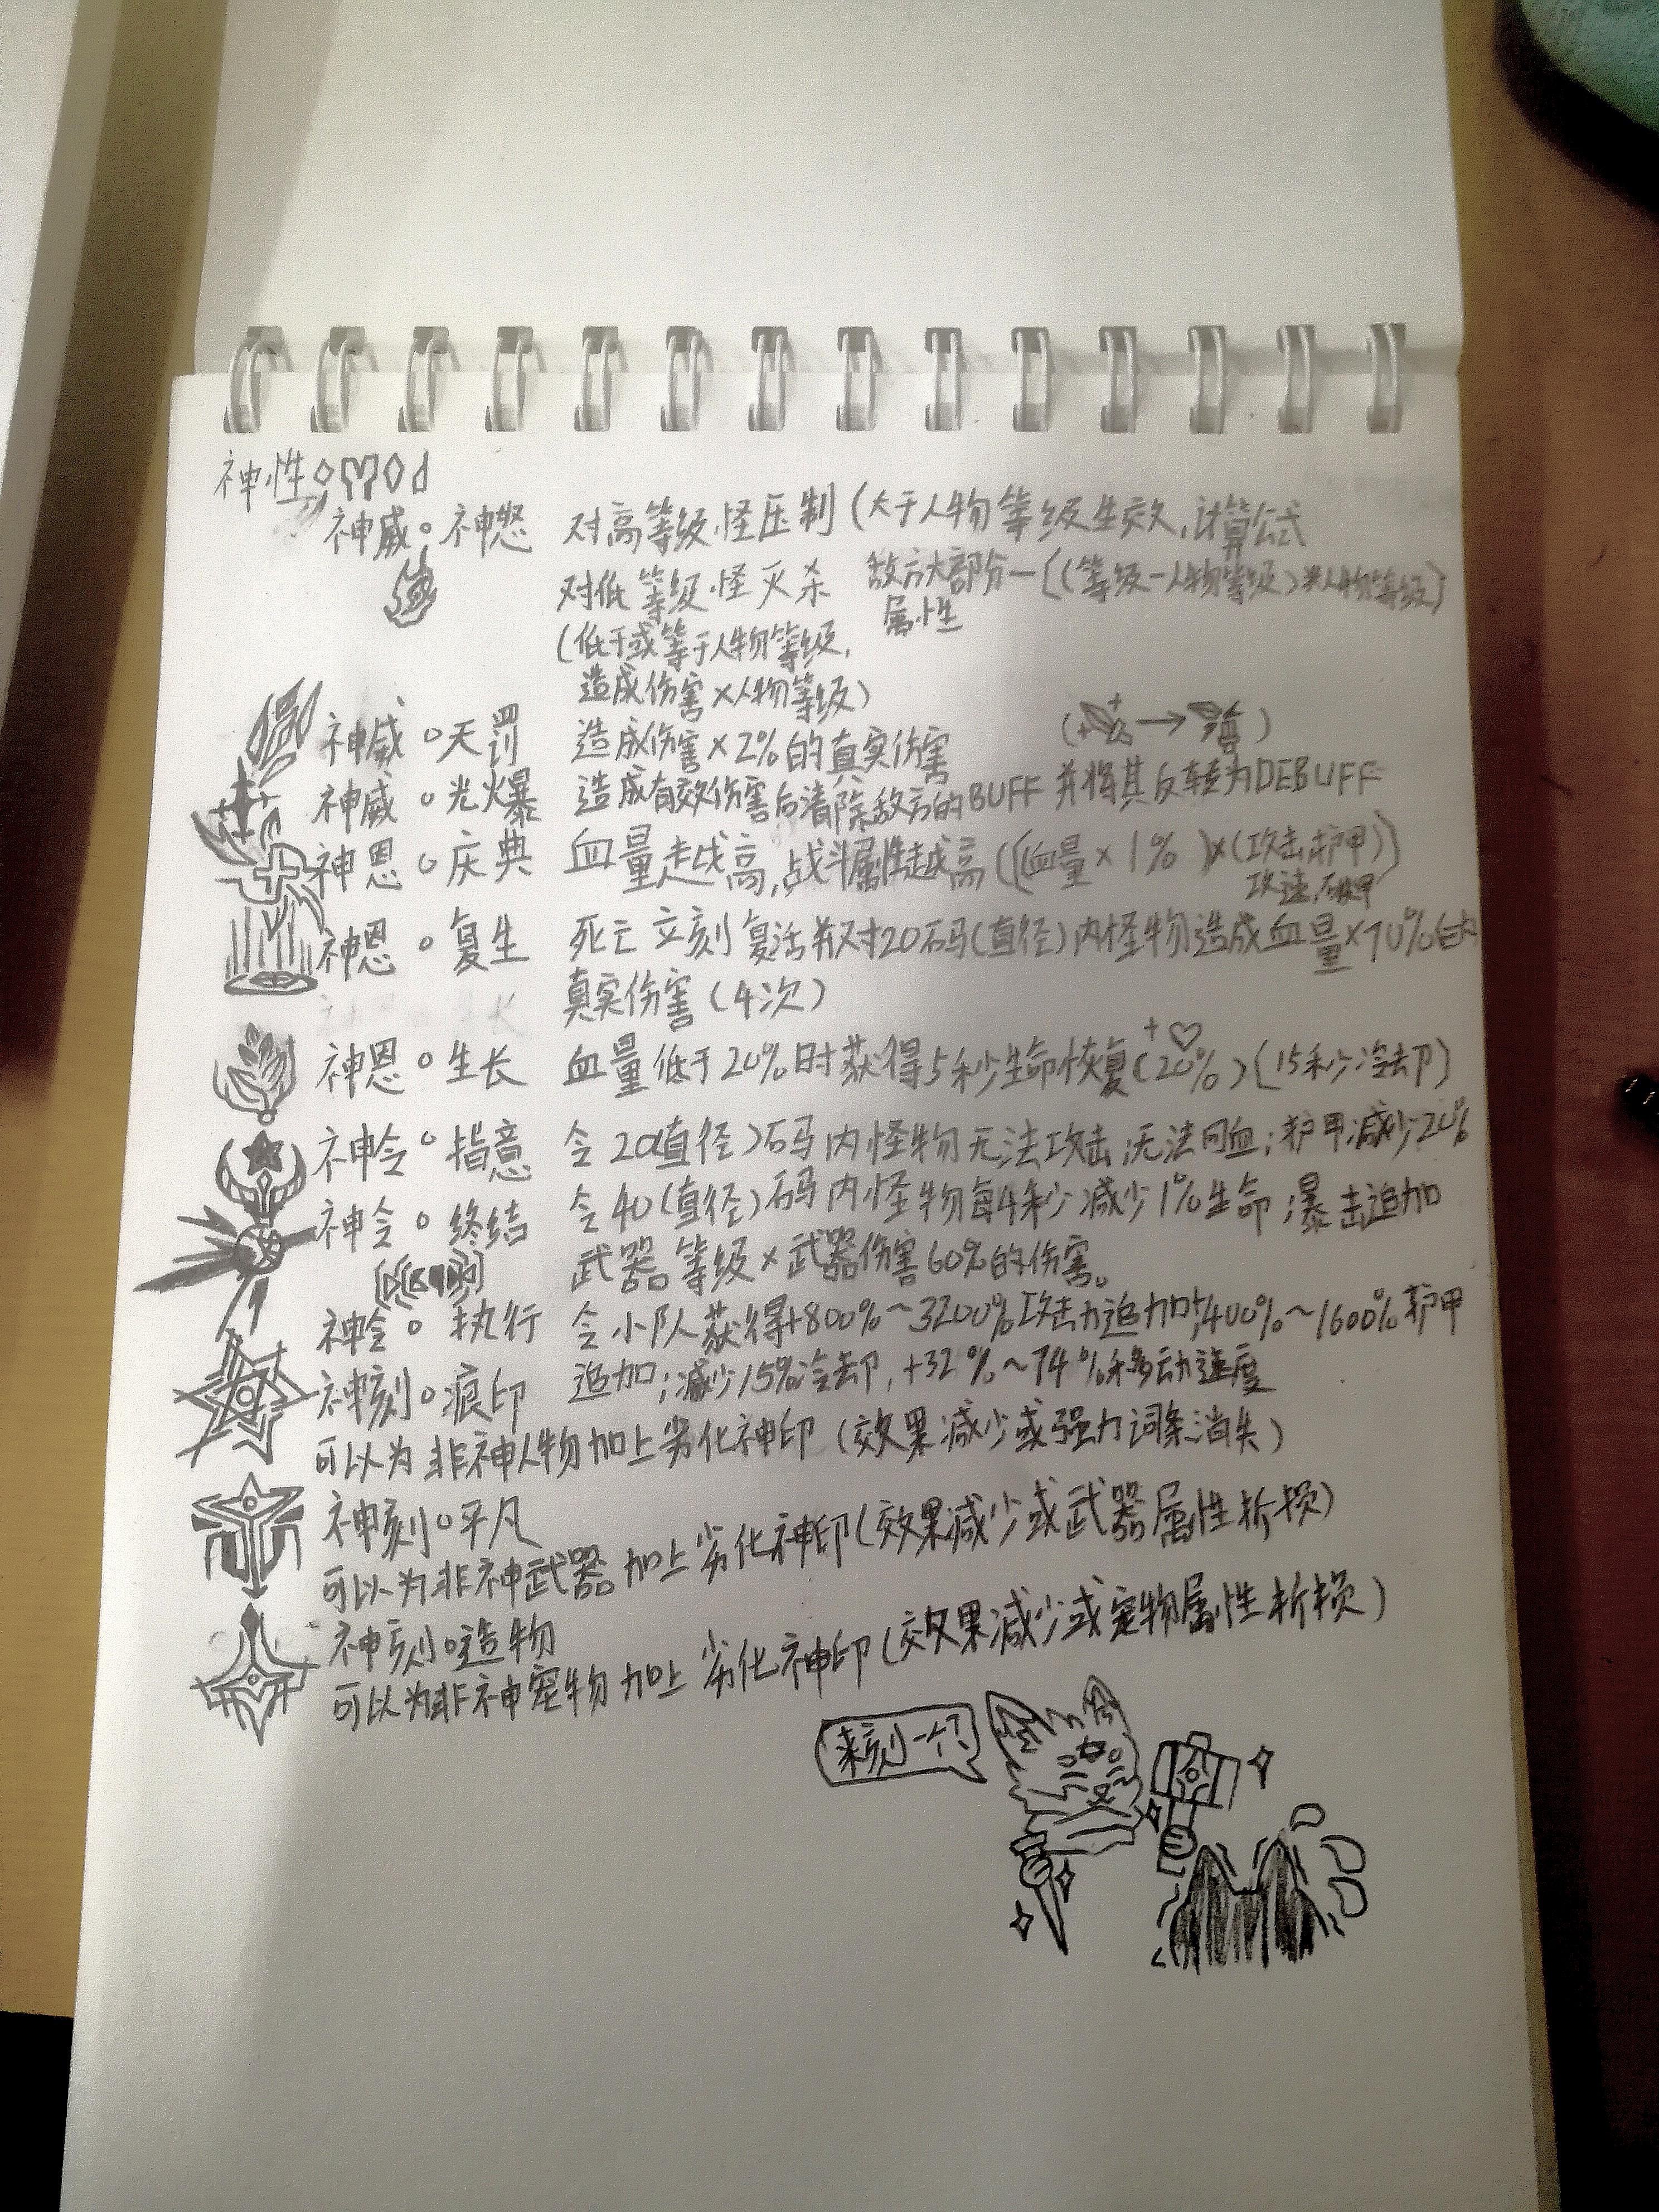 神性◇MOd
神威。神怒 对高等级怪压制(大于人物等级生效,计算公式
对低等级怪灭杀 敌方大部分属性—[(等级-人物等级)×人物等级]
(低于或等于人物等级,
造成伤害×人物等级)
神威。天罚 造成伤害×2%的真实伤害
神威。光爆 造成有效伤害后清除敌方的BUFF并将其反转为DEBUFF
神恩。庆典 血量越高,战斗属性越高((血量×1%)×(攻击,护甲
攻速,破甲))
神恩。复生 死亡立刻复活并对20码(直径)内怪物造成血量×70%的
真实伤害(4次)
神恩。生长 血量低于20%时获得5秒生命恢复(20%)(15秒冷却)
神令。指意 令20(直径)码内怪物无法攻击;无法回血;护甲减少20%
神令。终结 令40(直径)码内怪物每4秒减少1%生命 暴击追加
武器等级×武器伤害60%的伤害。
神令。执行 令小队获得+800%~3200%攻击力追加;+400%~1600%护甲
追加;减少15%冷却,+32%~74%移动速度
神刻。痕印
可以为非神人物加上劣化神印(效果减少或强力词条消失)
神刻。平凡
可以为非神武器加上劣化神印(效果减少或武器属性折损)
神刻。造物
可以为非神宠物加上劣化神印(效果减少或宠物属性折损)
来刻一个?